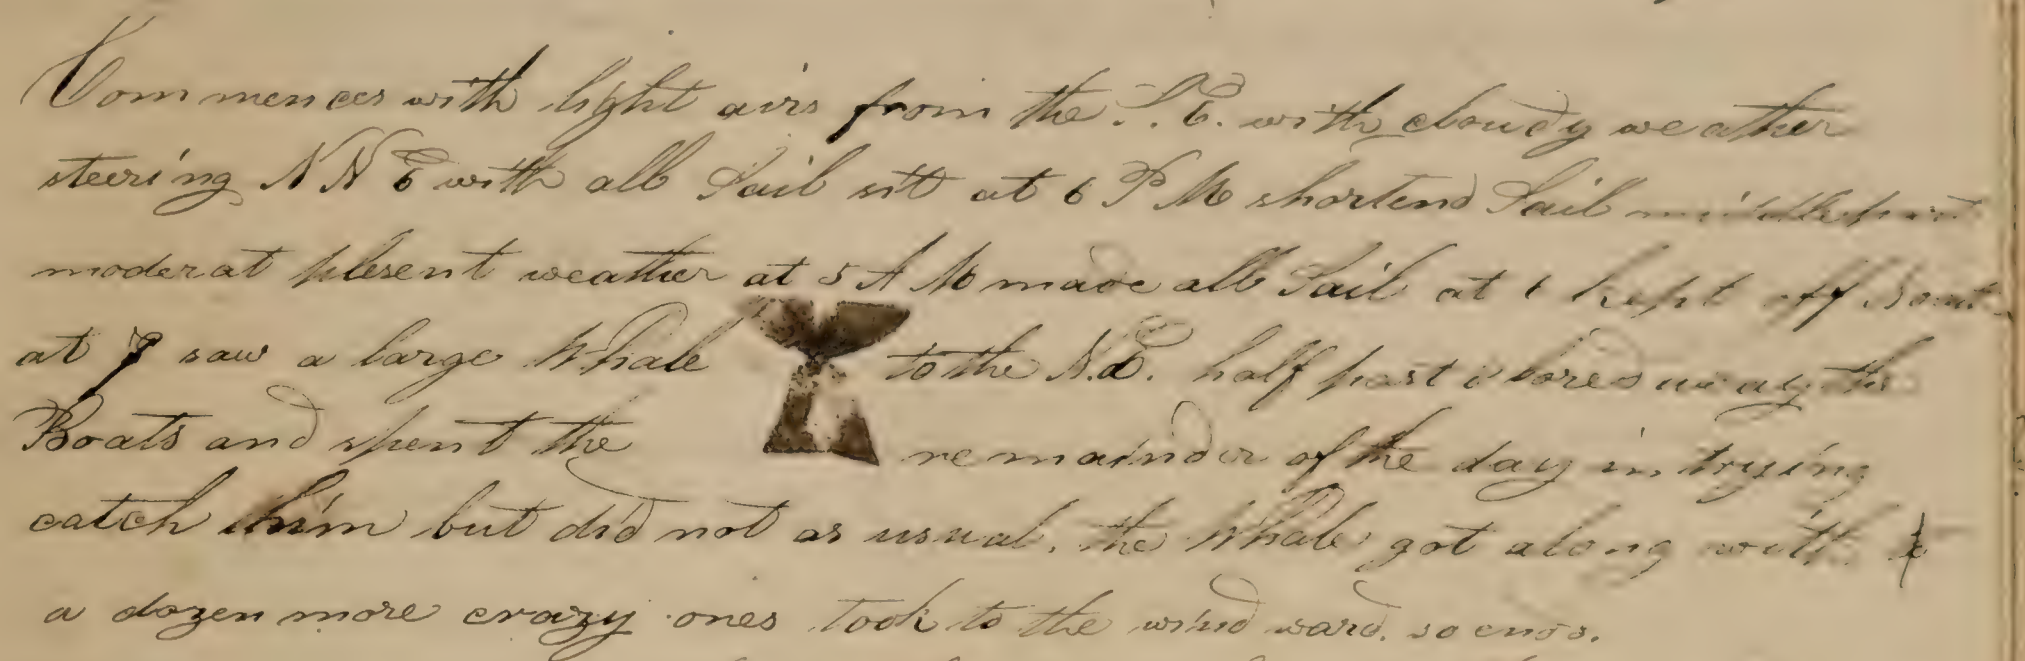 Commences with light airs from the S.E. with cloudy weather
steering N N E with all Sail sitt at 6 P M shortend Sail middle part
moderat plesent weather at 5 A M made all Sail at 6 kept off
at 7 saw a large Whale to the N.E. half past
Boats and spent the remainder of the day in trying
catch him but did not as usual, the Whale got along with
a dozen more crazy ones took to the wind ward. so ends.